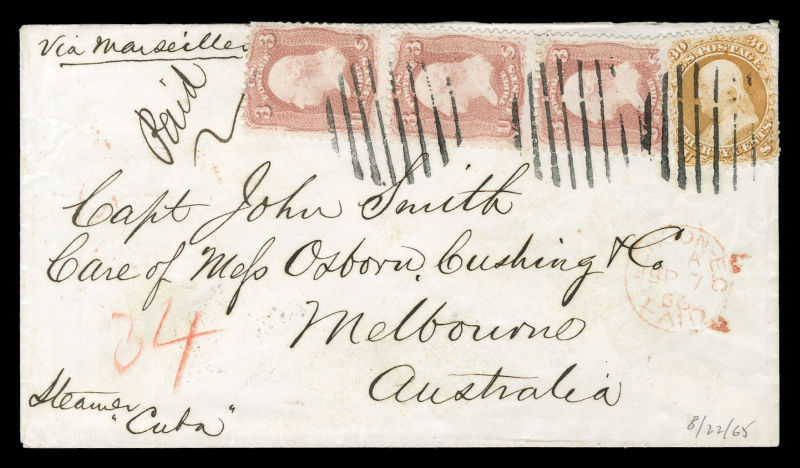 Via Marseilles
Paid
3 3 U S
3 3 CENTS U S
3
30 30
U.S. POSTAGE
THIRTY CENTS
U S
Capt John Smith
Care of Mess Osborn, Cushing & Co
Melbourne
Australia
34
Steamer
"Cuba"
A
SP 7
65
PAID
8/22/65